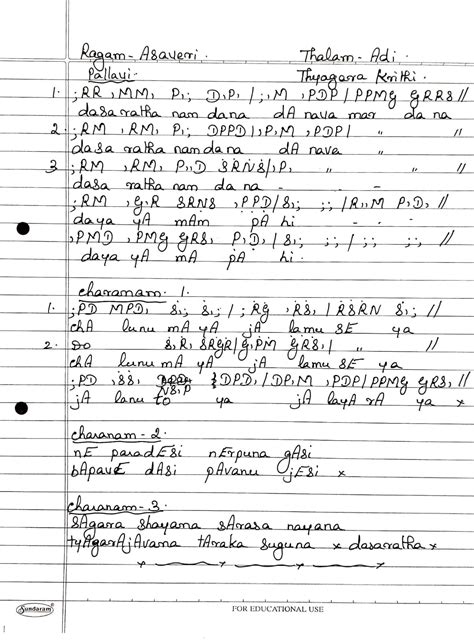 Ragam - Asaveri. Thalam - Adi.
Pallavi. Thyagaraja Krithi.
1. ; RR , MM, P, ; D, P, / ; , M , PDP / PPMG GRRS //
dasa ratha nam dana dA nava mar da na
2. ; RM , RM, P, ; DPPD / , P, M , PDP / " //
dasa ratha nam dana dA nava "
3 ; RM , RM, P, , D SRNS / , P, " " //
dasa ratha nam da na - - -
; RM , G, R SRNS , PPD / S, ; ; ; / R, , M P, D, //
daya yA mAm pA hi - - -
, PMD , PMG GRS, P, D, / S, ; ; ; / ; ; ; ; //
daya yA mA pA hi .
charanam 1.
1. ; PD MPD, S, ; S, ; / ; RG , RS, / RSRN S, ; //
chA lunu mA yA jA lamu SE ya
2. Do S, R, SRGR / G, PM GRS, / " //
chA lunu mA yA jA lamu SE ya
; PD , SS, NS, P DPD, / DP, M , PDP / PPMG GRS, //
jA lanu to ya jA layA rA ya x
charanam - 2
nE paradESi nErpuna gASi
bApavE dASi pAvanu jESi x
charanam - 3.
sAgara shayama sArasa nayana
tyAgarAjAvama tAraka suguna x dasaratha x
Sundaram
FOR EDUCATIONAL USE